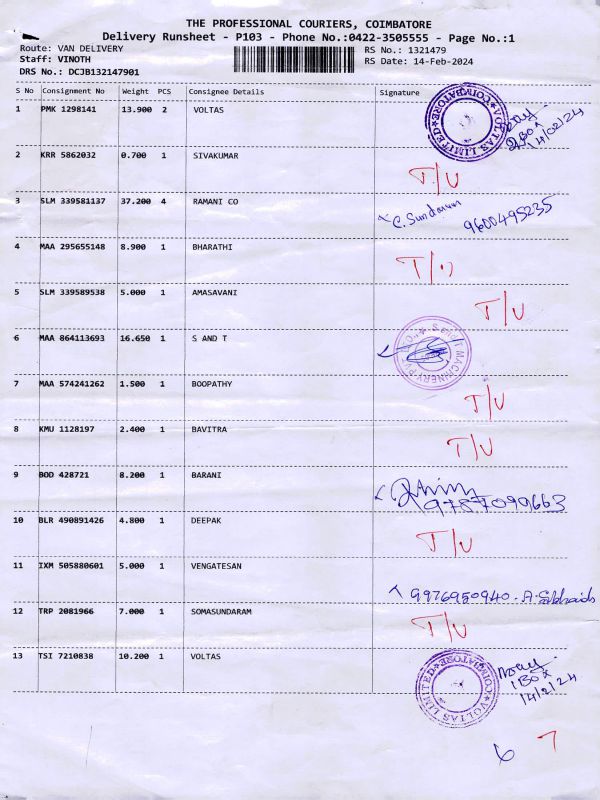 THE PROFESSIONAL COURIERS, COIMBATORE
Delivery Runsheet - P103 - Phone No.:0422-3505555 - Page No.:1
Route: VAN DELIVERY RS No.: 1321479
Staff: VINOTH RS Date: 14-Feb-2024
DRS No.: DCJB132147901
S No Consignment No Weight PCS Consignee Details Signature
1 PMK 1298141 13.900 2 VOLTAS VOLTAS LIMITED COIMBATORE
14/02/24
2 KRR 5862032 0.700 1 SIVAKUMAR T/U
3 SLM 339581137 37.200 4 RAMANI CO C. Sundaram 9600495235
4 MAA 295655148 8.900 1 BHARATHI T/U
5 SLM 339589538 5.000 1 AMASAVANI T/U
6 MAA 864113693 16.650 1 S AND T MACHINERY
7 MAA 574241262 1.500 1 BOOPATHY T/U
8 KMU 1128197 2.400 1 BAVITRA T/U
9 BOD 428721 8.200 1 BARANI 9787099663
10 BLR 490891426 4.800 1 DEEPAK T/U
11 IXM 505880601 5.000 1 VENGATESAN 9976950940 - A.
12 TRP 2081966 7.000 1 SOMASUNDARAM T/U
13 TSI 7210838 10.200 1 VOLTAS VOLTAS LIMITED COIMBATORE
1 Box
14/2/24
6 7